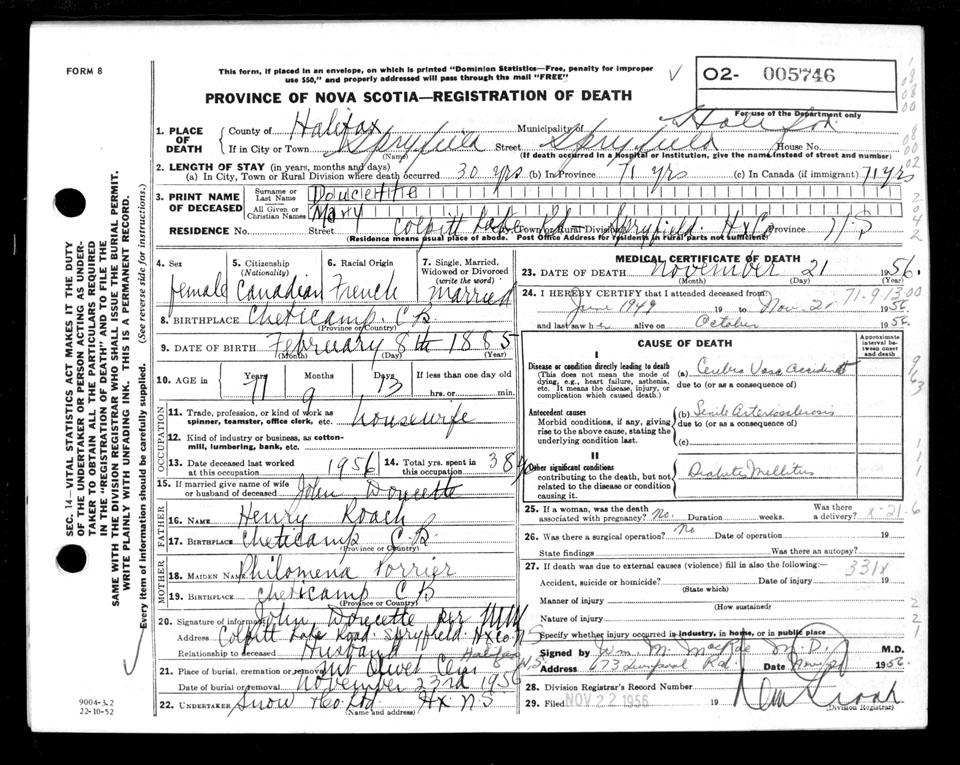 FORM 8
This form, if placed in an envelope, on which is printed "Dominion Statistics—Free, penalty for improper
use $50," and properly addressed will pass through the mail "FREE"
02- 005746
PROVINCE OF NOVA SCOTIA—REGISTRATION OF DEATH
For use of the Department only
1. PLACE OF DEATH
County of Halifax Municipality of Halifax
If in City or Town Spryfield Street Spryfield House No.
(Name) (If death occurred in a Hospital or Institution, give the name instead of street and number)
2. LENGTH OF STAY (in years, months and days)
(a) In City, Town or Rural Division where death occurred 30 yrs (b) In Province 71 yrs (c) In Canada (if immigrant) 71 yrs
3. PRINT NAME OF DECEASED
Surname or Last Name Doucette
All Given or Christian Names Mary
RESIDENCE No. Street Colpitt Lake Rd City, Town or Rural Division Spryfield Hx Co Province N S
(Residence means usual place of abode. Post Office Address for residents in rural parts not sufficient)
4. Sex female
5. Citizenship (Nationality) Canadian
6. Racial Origin French
7. Single, Married, Widowed or Divorced (write the word) Married
8. BIRTHPLACE Cheticamp C.B.
(Province or Country)
9. DATE OF BIRTH February 8th 1885
(Month) (Day) (Year)
10. AGE in Years 71 Months 9 Days 13 If less than one day old
hrs. or min.
OCCUPATION
11. Trade, profession, or kind of work as spinner, teamster, office clerk, etc. housewife
12. Kind of industry or business, as cotton-mill, lumbering, bank, etc.
13. Date deceased last worked at this occupation 1956
14. Total yrs. spent in this occupation 38 yrs
15. If married give name of wife or husband of deceased John Doucette
FATHER
16. NAME Henry Roach
17. BIRTHPLACE Cheticamp C.B.
(Province or Country)
MOTHER
18. MAIDEN NAME Philomena Porrier
19. BIRTHPLACE Cheticamp C B
(Province or Country)
20. Signature of informant John Doucette per
Address Colpitt Lake Road Spryfield Hx Co N S
Relationship to deceased Husband
21. Place of burial, cremation or removal Mt Olivet Cem Halifax N.S.
Date of burial or removal November 23rd 1956
22. UNDERTAKER Snow & Co Ltd Hx N S
(Name and address)
MEDICAL CERTIFICATE OF DEATH
23. DATE OF DEATH November 21 1956.
(Month) (Day) (Year)
24. I HEREBY CERTIFY that I attended deceased from 71-9-13 00
June 1949 19 to Nov. 21 1956.
and last saw her alive on October 1956.
CAUSE OF DEATH
Approximate interval between onset and death
I
Disease or condition directly leading to death
(This does not mean the mode of dying, e.g., heart failure, asthenia, etc. It means the disease, injury, or complication which caused death.)
(a) Cerebro Vasc Accident
due to (or as a consequence of)
Antecedent causes
Morbid conditions, if any, giving rise to the above cause, stating the underlying condition last.
(b) Senile Arteriosclerosis
due to (or as a consequence of)
(c)
II
Other significant conditions
contributing to the death, but not related to the disease or condition causing it.
Diabetes Mellitus
25. If a woman, was the death associated with pregnancy? No. Duration weeks. Was there a delivery? X-21-6
26. Was there a surgical operation? No Date of operation 19
State findings Was there an autopsy?
27. If death was due to external causes (violence) fill in also the following: 331X
Accident, suicide or homicide? Date of injury 19
(State which)
Manner of injury
(How sustained)
Nature of injury
Specify whether injury occurred in industry, in home, or in public place
Signed by Wm. M. MacRae M.D. M.D.
Address 673 Liverpool Rd. Date Nov 1956.
28. Division Registrar's Record Number
29. Filed NOV 22 1956 19
(Division Registrar)
SEC. 14—VITAL STATISTICS ACT MAKES IT THE DUTY
OF THE UNDERTAKER OR PERSON ACTING AS UNDER-
TAKER TO OBTAIN ALL THE PARTICULARS REQUIRED
IN THE "REGISTRATION OF DEATH" AND TO FILE THE
SAME WITH THE DIVISION REGISTRAR WHO SHALL ISSUE THE BURIAL PERMIT.
WRITE PLAINLY WITH UNFADING INK. THIS IS A PERMANENT RECORD.
Every item of information should be carefully supplied. (See reverse side for instructions.)
9004-3.2
22-10-52